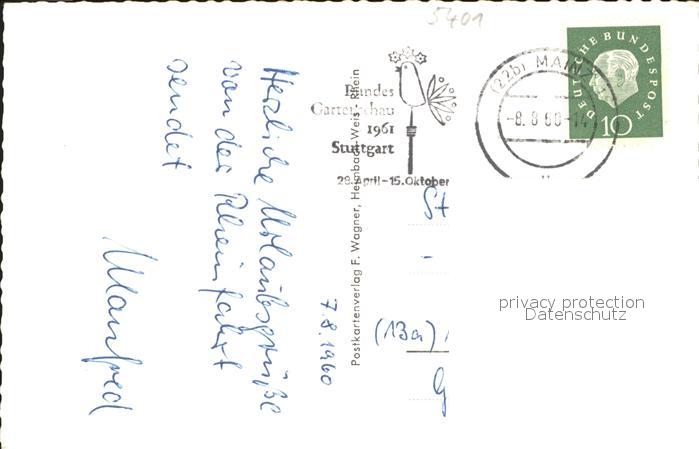 5401
Bundes
Gartenschau
1961
Stuttgart
28.April-15.Oktober
(22b) MAINZ
-8.8.60-14
DEUTSCHE BUNDESPOST
10
7.8.1960
Herzliche Urlaubsgrüße
von der Rheinfahrt
sendet
Manfred
Postkartenverlag F. Wagner, Heimbach-Weis / Rhein
St
(13a)
G
privacy protection
Datenschutz